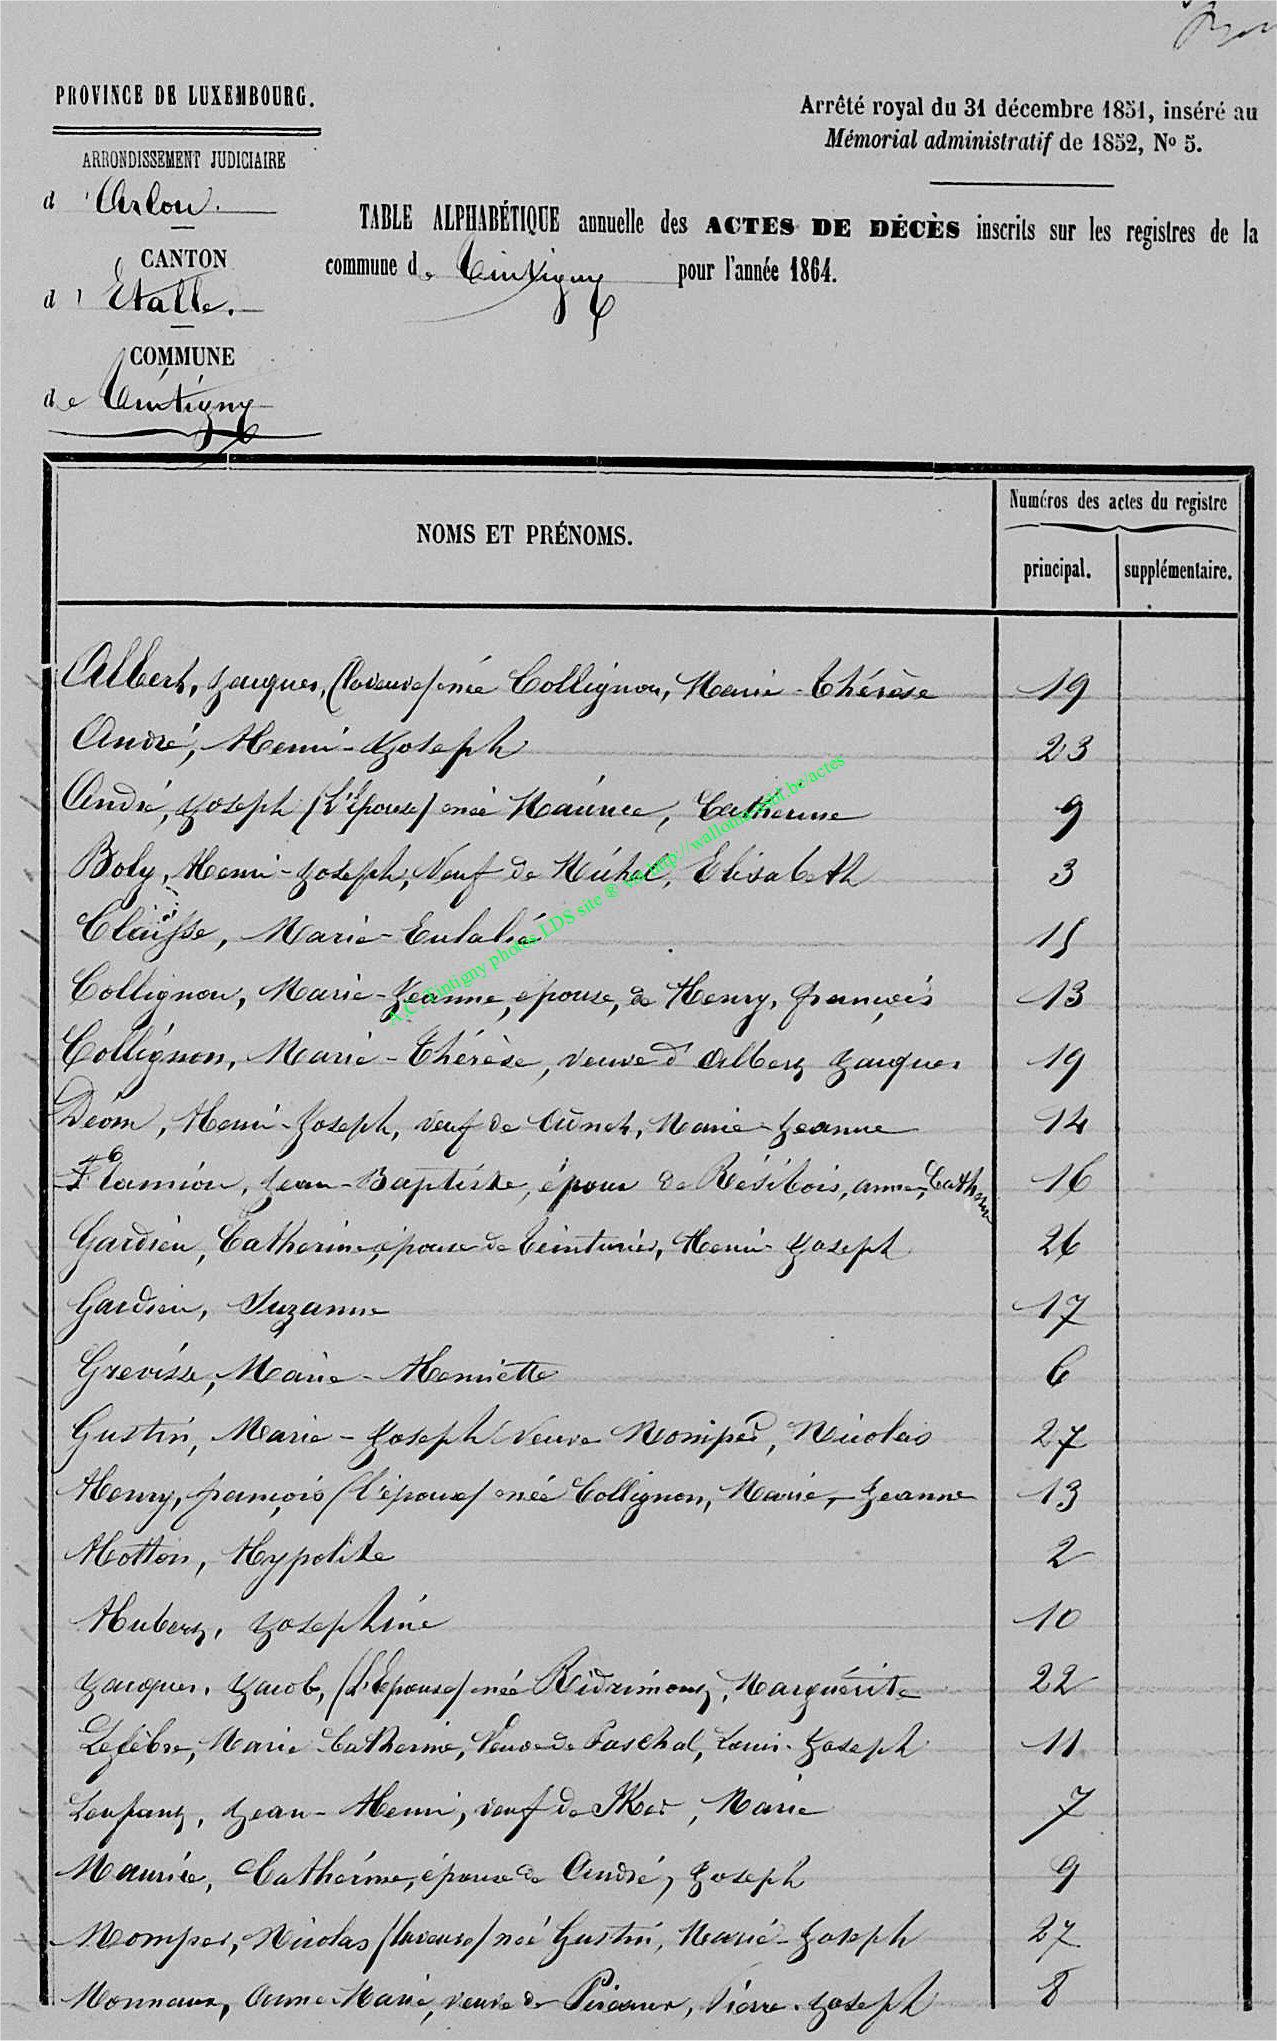 PROVINCE DE LUXEMBOURG.
Arrêté royal du 31 décembre 1851, inséré au
Mémorial administratif de 1852, No 5.
ARRONDISSEMENT JUDICIAIRE
d'Arlon.
CANTON
d'Etalle.
COMMUNE
de Tintigny
TABLE ALPHABÉTIQUE annuelle des ACTES DE DÉCÈS inscrits sur les registres de la
commune de Tintigny pour l'année 1864.
NOMS ET PRÉNOMS.
Numéros des actes du registre
principal. supplémentaire.
Albert, Jacques, (la veuve) née Collignon, Marie-Thérèse 19
André, Henri-Joseph 23
André, Joseph (l'épouse) née Maurice, Catherine 9
Boly, Henri-Joseph, Veuf de Michel, Elisabeth 3
Claisse, Marie-Eulalie 15
Collignon, Marie-Jeanne, épouse, de Henry, françois 13
Collignon, Marie-Thérèse, veuve d'Albert Jacques 19
Déom, Henri-Joseph, veuf de Marie-Jeanne 14
Flamion, Jean-Baptiste, époux de Résibois, anne, Catherine 16
Gardien, Catherine, épouse de Teinturier, Henri-Joseph 26
Gardien, Suzanne 17
Grevisse, Marie-Henriette 6
Gustin, Marie-Joseph Veuve Momper, Nicolas 27
Henry, françois (l'épouse) née Collignon, Marie-Jeanne 13
Hotton, Hypolite 2
Hubert, Joséphine 10
Jacques, Jacob, (l'Epouse) née Marguérite 22
Lefèbre, Marie-Catherine, Veuve de Paschal, Louis-Joseph 11
Jean-Henri, veuf de Marie 7
Maurice, Cathérine, épouse de André, Joseph 9
Momper, Nicolas (la veuve) née Gustin, Marie-Joseph 27
Monneaux, Anne Marie, veuve de Pierre-Joseph 8
A.C. Tintigny photos LDS site ® via http://wallonia-asbl.be/actes